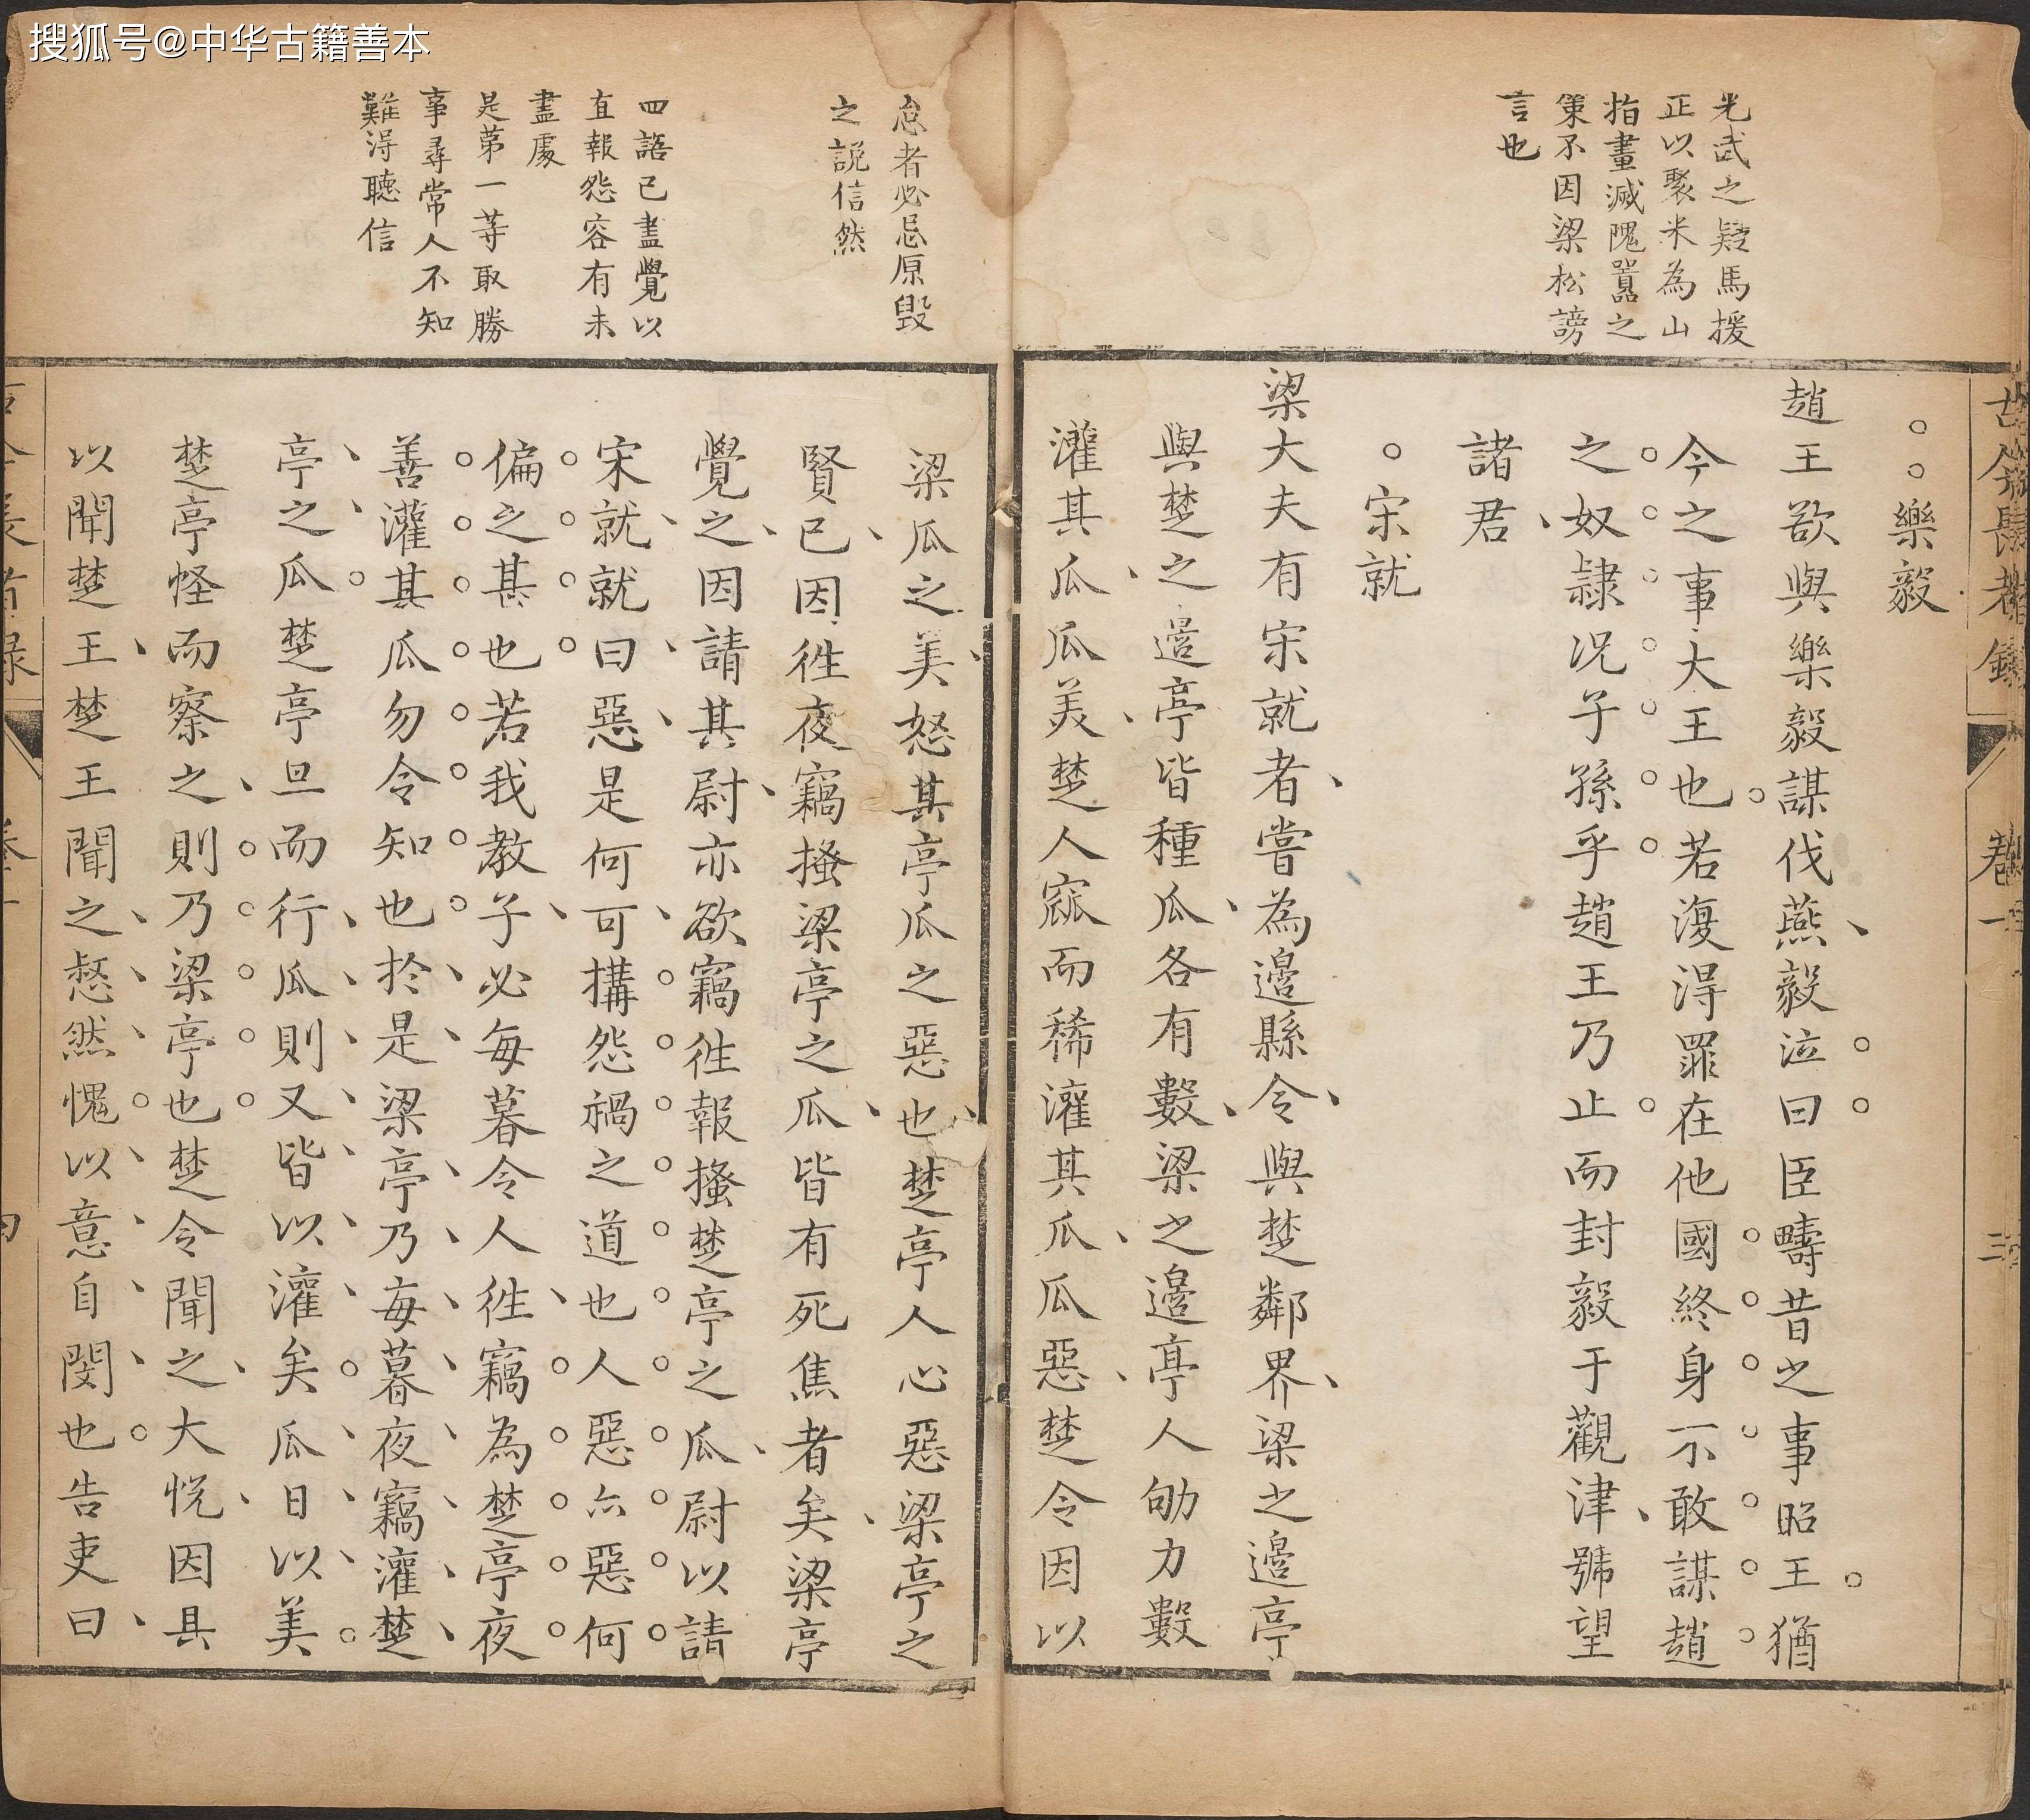 搜狐号@中华古籍善本
光武之疑馬援
正以聚米為山
指畫滅隗囂之
策不因梁松謗
言也
古今長者錄
卷一
三
樂毅
趙王欲與樂毅謀伐燕毅泣曰臣疇昔之事昭王猶
今之事大王也若復得罪在他國終身不敢謀趙
之奴隸况子孫乎趙王乃止而封毅于觀津號望
諸君
宋就
梁大夫有宋就者嘗為邊縣令與楚鄰界梁之邊亭
與楚之邊亭皆種瓜各有數梁之邊亭人劬力數
灌其瓜瓜美楚人窳而稀灌其瓜瓜惡楚令因以
怠者必忌原毁
之説信然
四語已盡覺以
直報怨容有未
盡處
是第一等取勝
事尋常人不知
難得聽信
梁瓜之美怒其亭瓜之惡也楚亭人心惡梁亭之
賢已因徃夜竊搔梁亭之瓜皆有死焦者矣梁亭
覺之因請其尉亦欲竊徃報搔楚亭之瓜尉以請
宋就就曰惡是何可搆怨禍之道也人惡亦惡何
偏之甚也若我教子必每暮令人徃竊為楚亭夜
善灌其瓜勿令知也於是梁亭乃每暮夜竊灌楚
亭之瓜楚亭旦而行瓜則又皆以灌矣瓜日以美
楚亭怪而察之則乃梁亭也楚令聞之大悅因具
以聞楚王楚王聞之惄然愧以意自閔也告吏曰